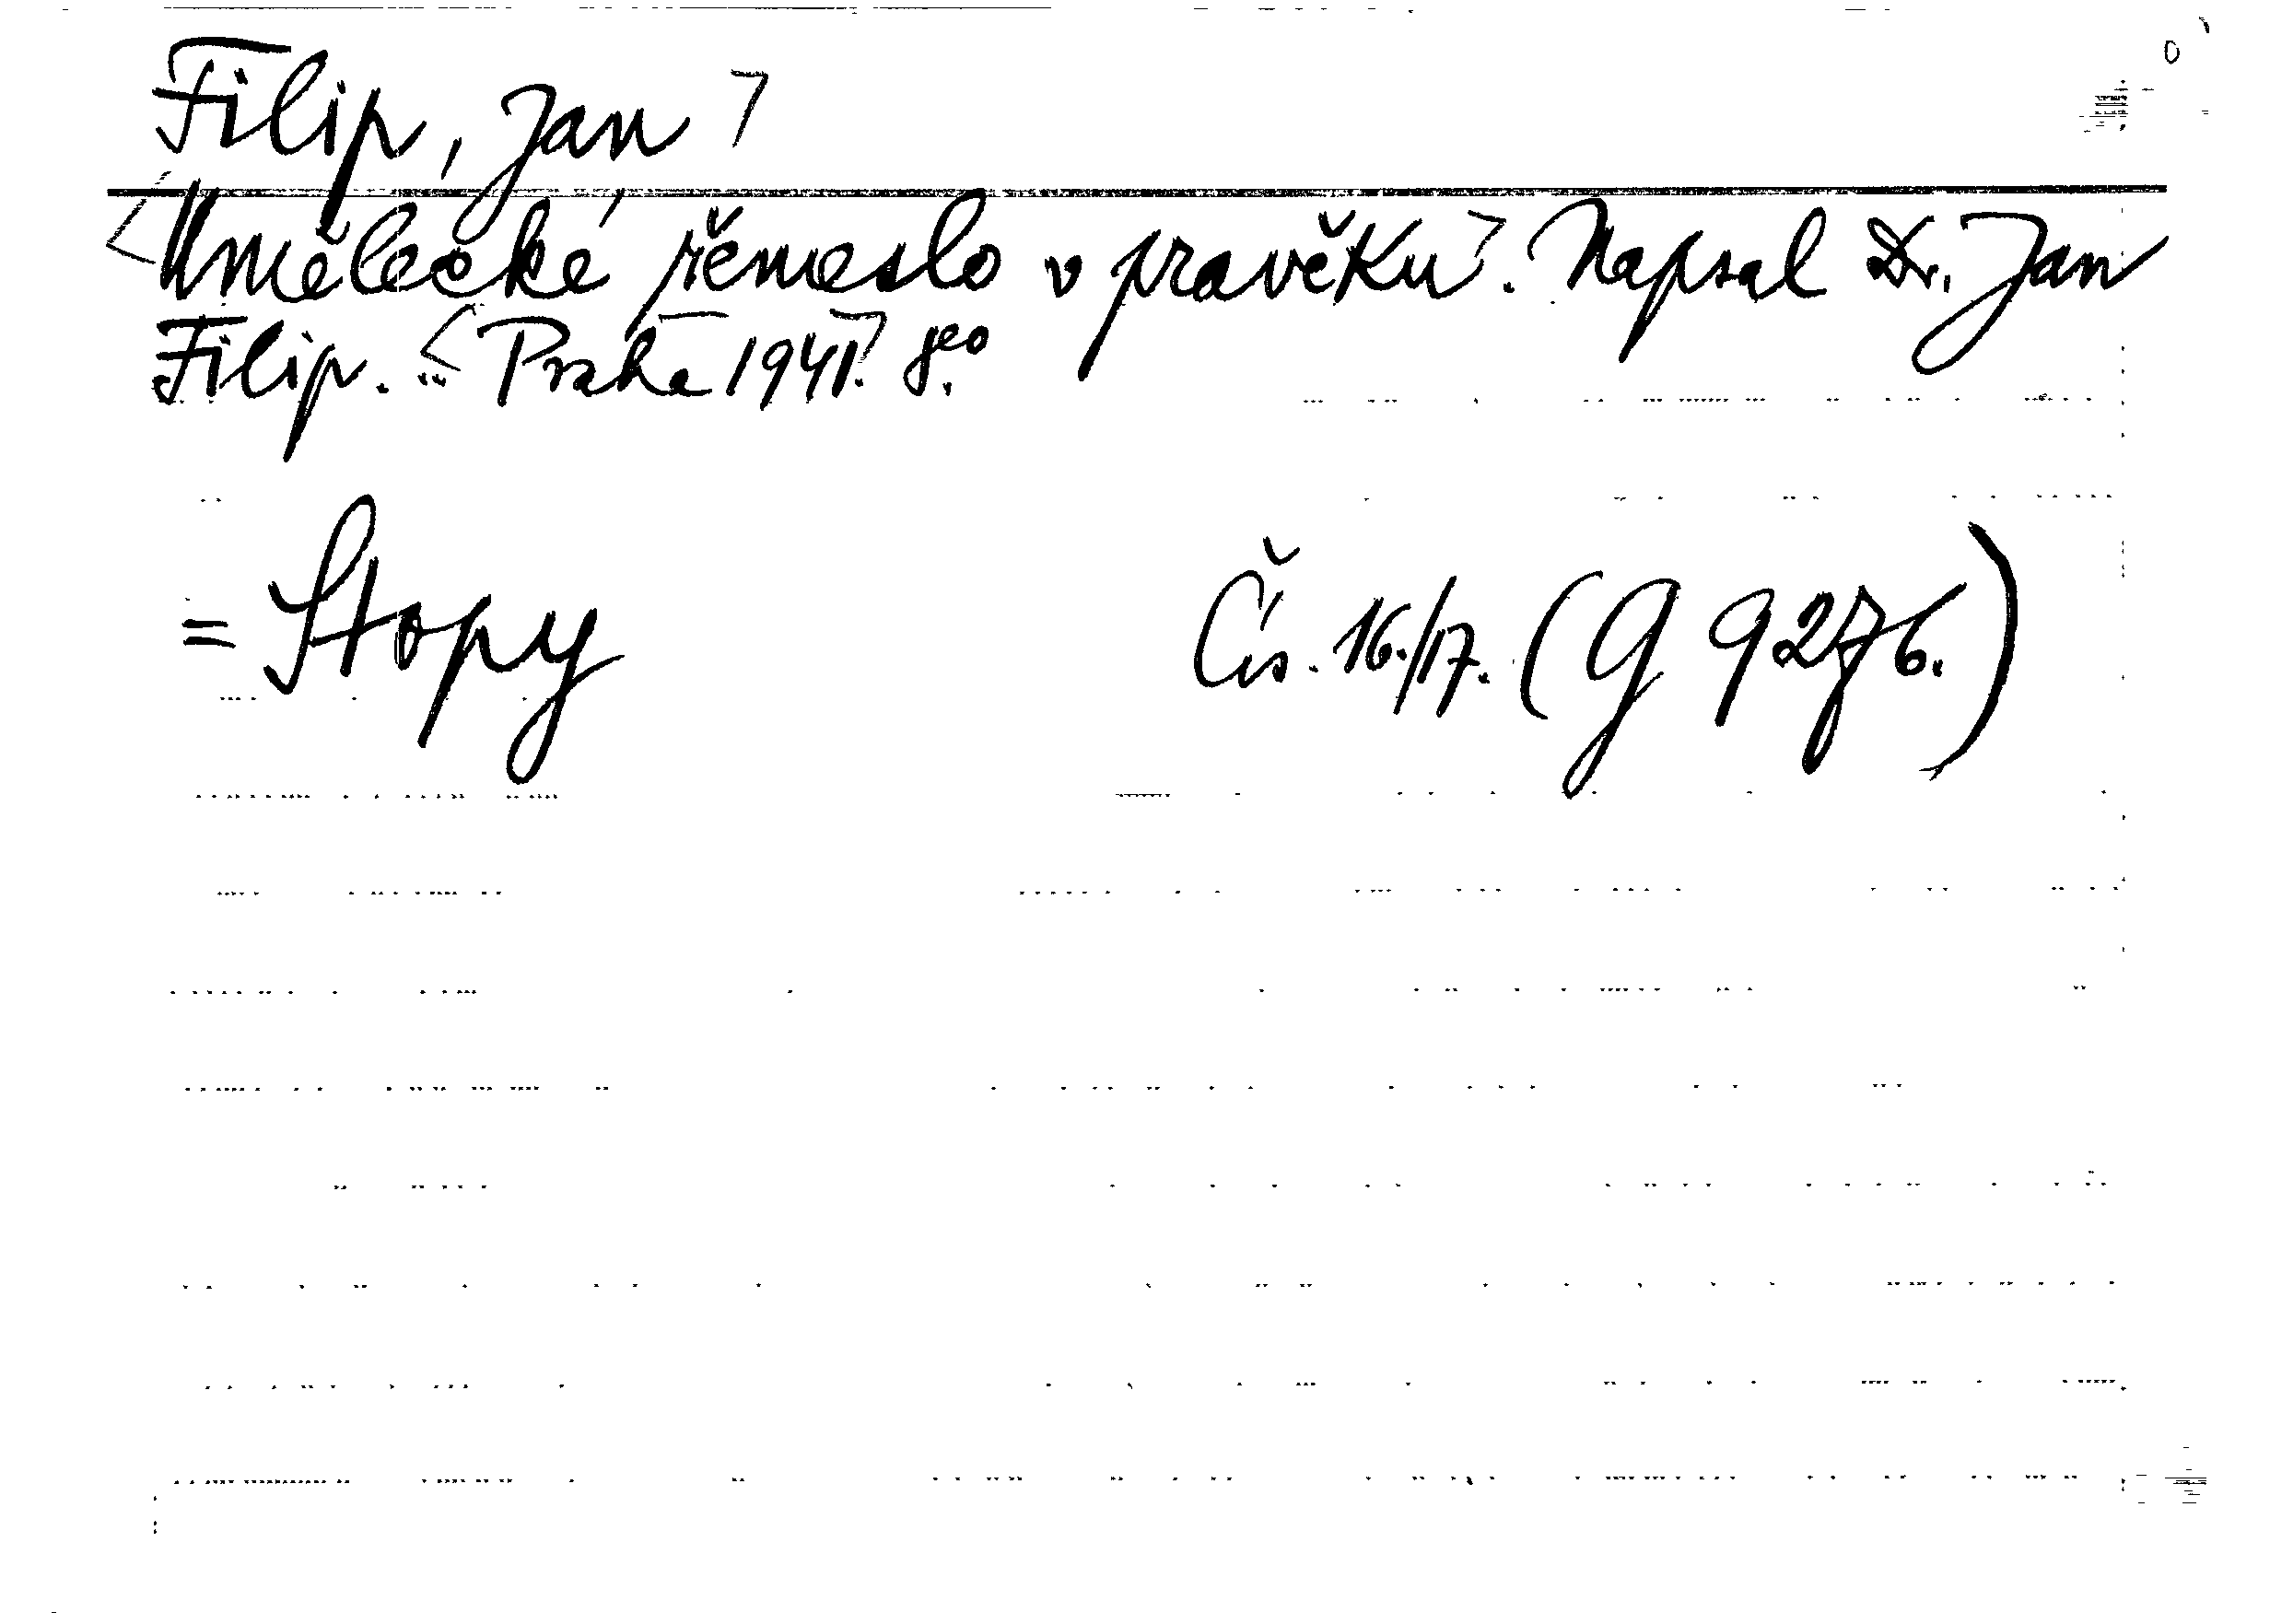 Filip, Jan
Umělecké řemeslo v pravěku. Napsal Dr. Jan
Filip. ... Praha 1941. 8eo.
= Stopy Čís. 16./17. (G 9276.)